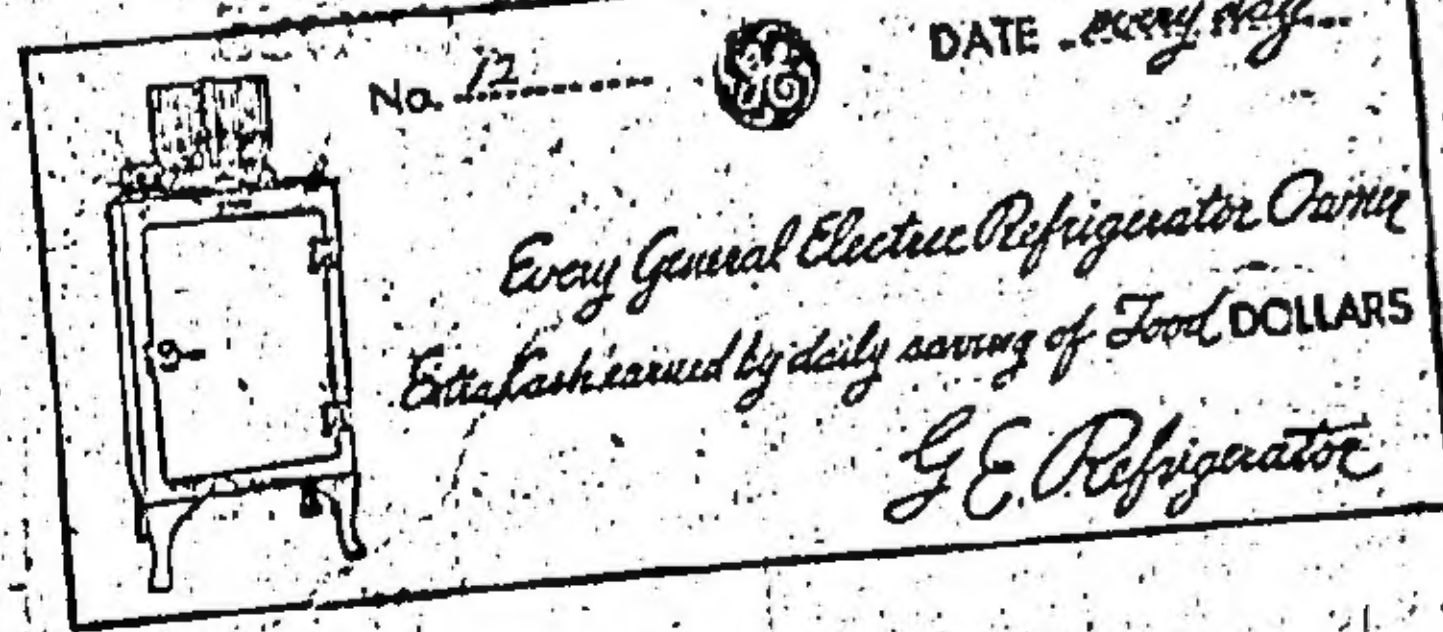 No. 12
GE
DATE every day
Every General Electric Refrigerator Owner
Extra Cash earned by daily saving of Food DOLLARS
G E. Refrigerator